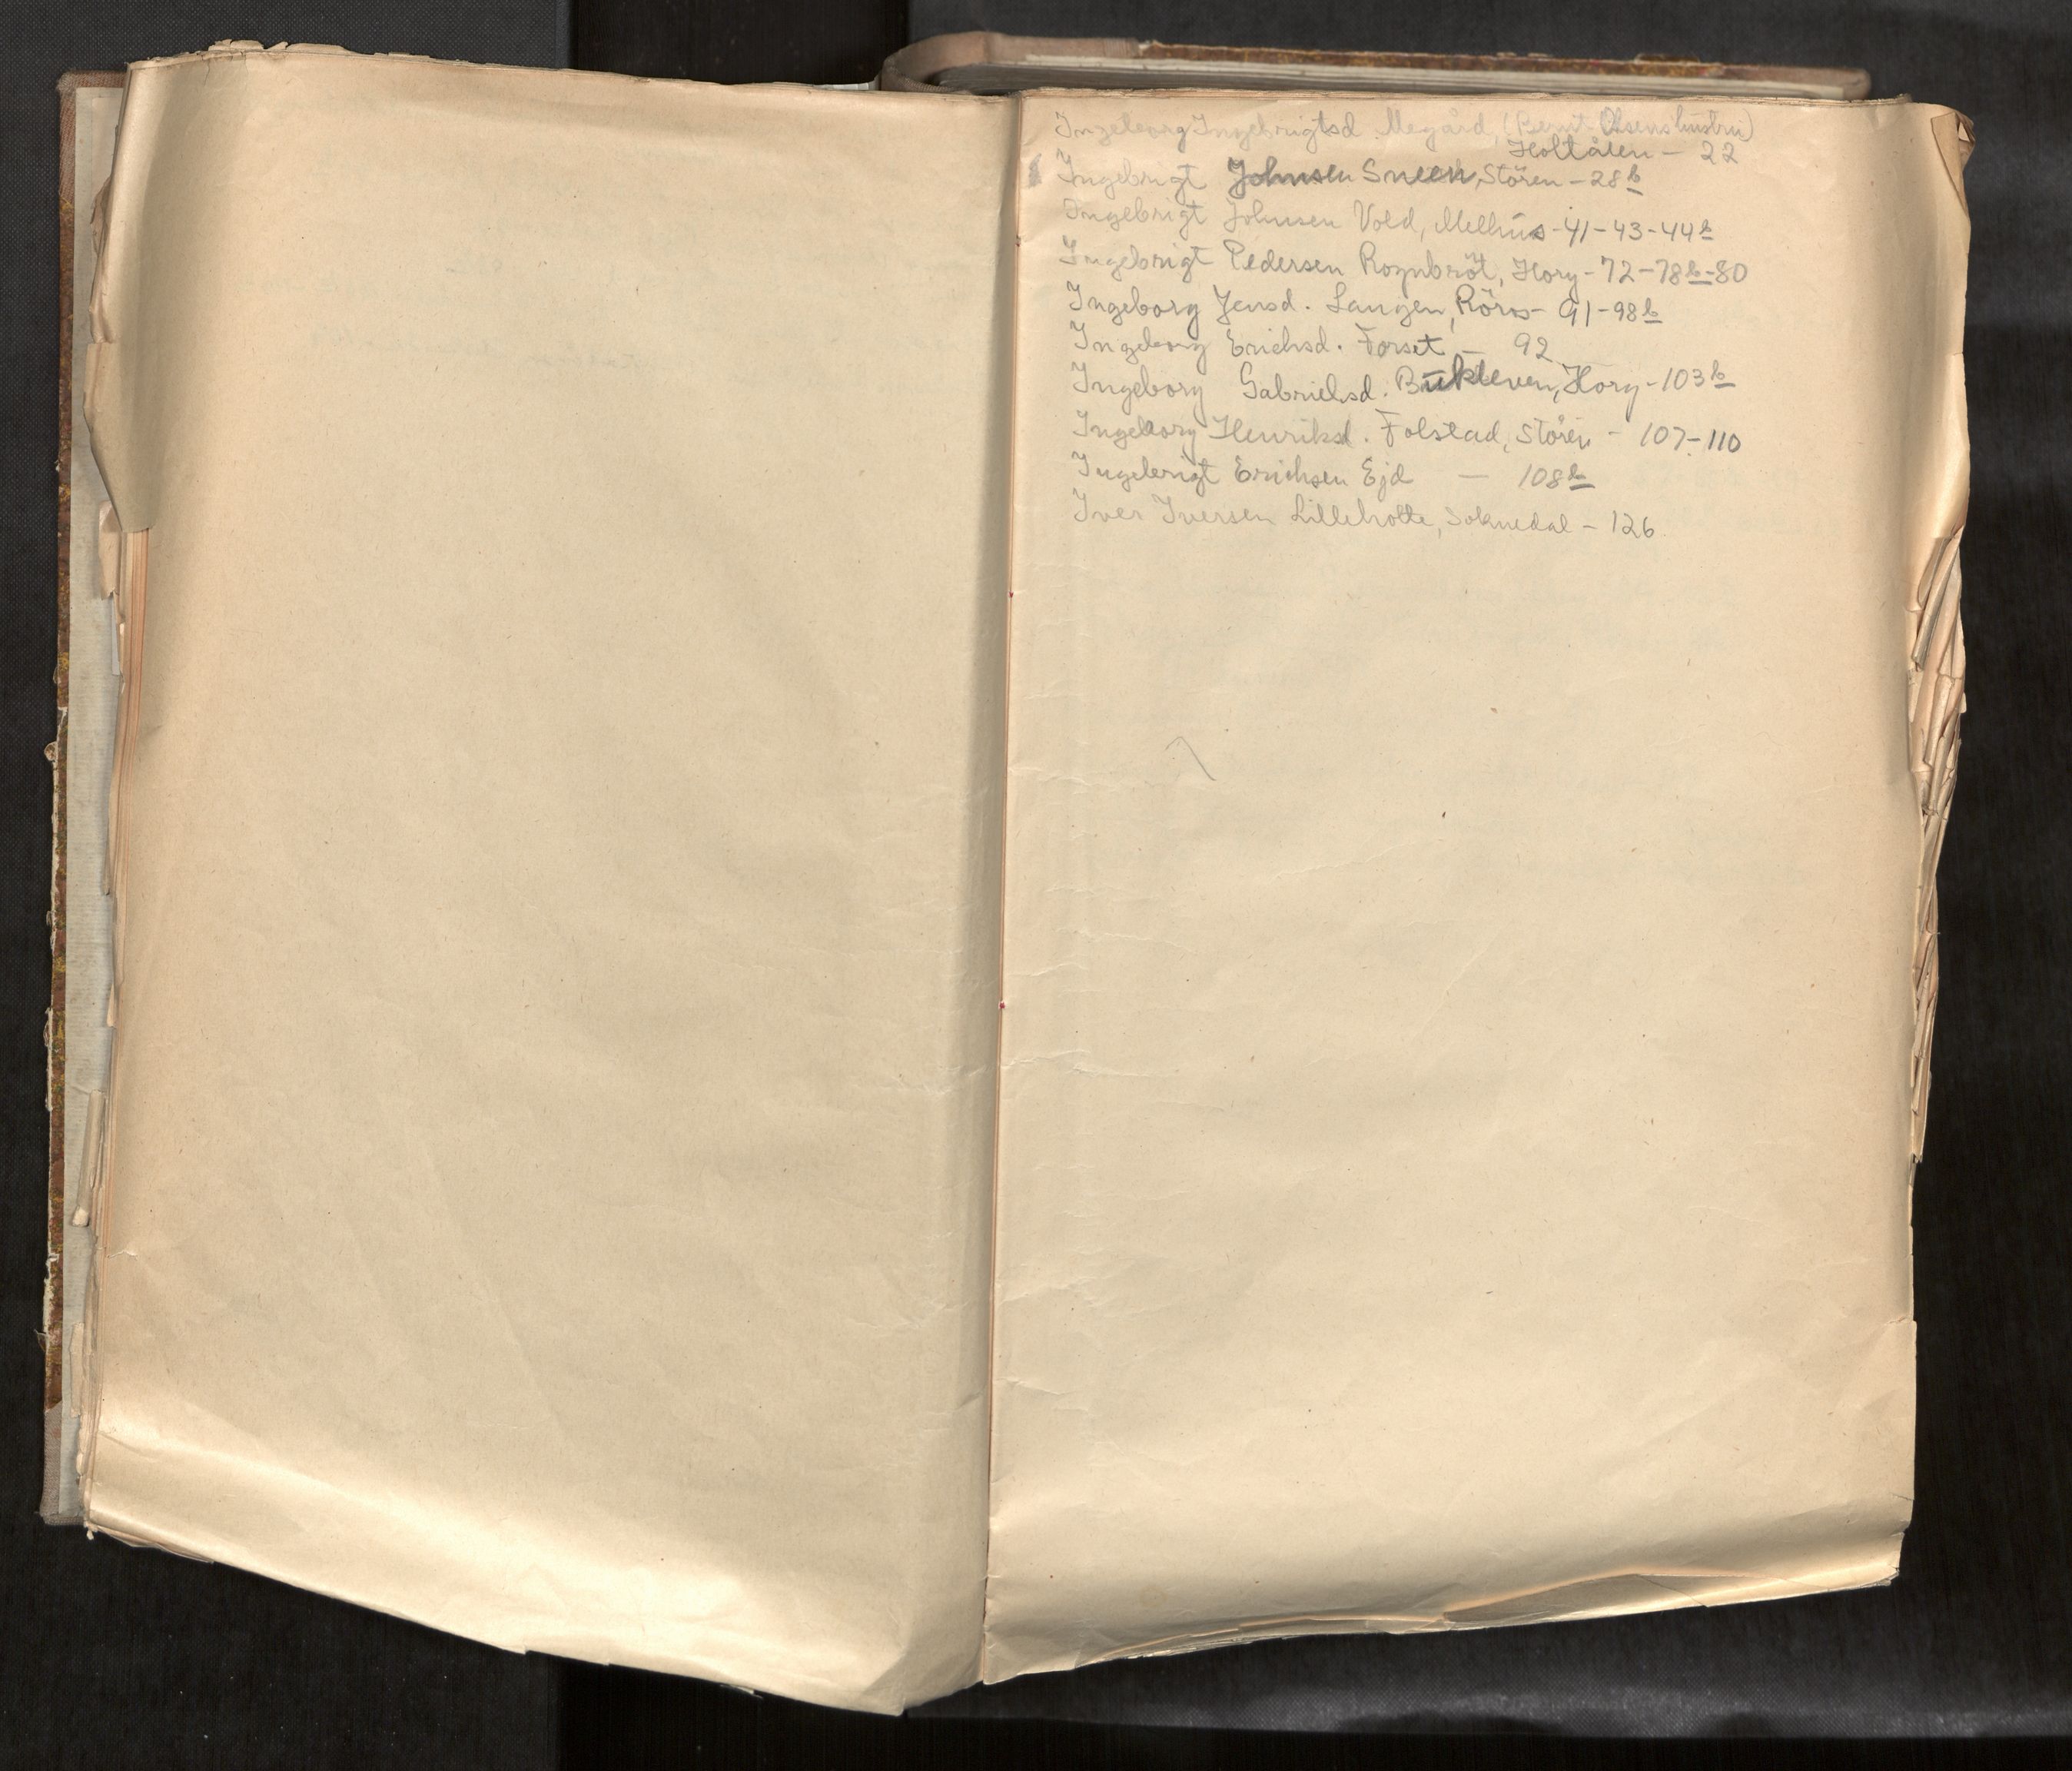 Ingeborg Ingebrigtsd. Megård, (Bernt Olsens hustru)
Holtålen - 22
Ingebrigt Johnsen Sneen, Stören - 28 b
Ingebrigt Johnsen Vold, Melhus - 41 - 43 - 44 b
Ingebrigt Pedersen Rognbröt, Horg - 72 - 78 b - 80
Ingeborg Jensd. Langen, Röros - 91 - 98 b
Ingeborg Erichsd. Forset - 92
Ingeborg Gabrielsd. Bukleven, Horg - 103 b
Ingeborg Henriksd. Folstad, Stören - 107 - 110
Ingebrigt Erichsen Ejd - 108 b
Iver Iversen Lilleholte, Soknedal - 126